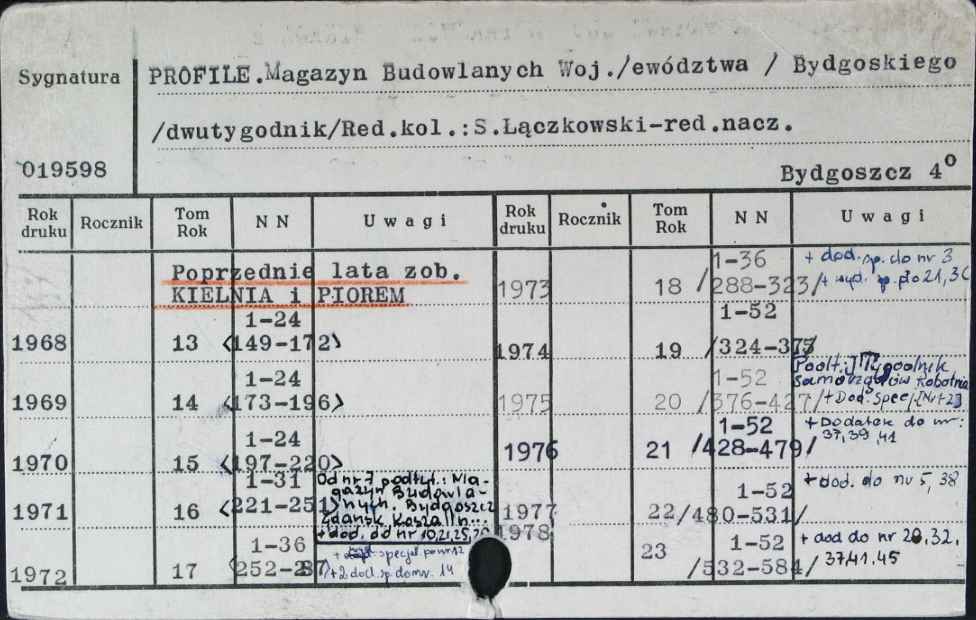 Sygnatura
PROFILE.Magazyn Budowlanych Woj./ewództwa / Bydgoskiego
/dwutygodnik/Red.kol.:S.Łączkowski-red.nacz.
019598
Bydgoszcz 4º
Rok druku Rocznik Tom Rok N N Uwagi Rok druku Rocznik Tom Rok N N Uwagi
Poprzednie lata zob.
KIELNIA i PIOREM
1-24
1968 13 <149-172>
1-24
1969 14 <173-196>
1-24
1970 15 <197-220>
1-31
1971 16 <221-251>
Od nr 7 podtyt.: Ma-
gazyn Budowla-
nych. Bydgoszcz
Gdańsk Koszalin...
+ dod. do nr 10,21,25,
1-36
1972 17 252-287
+ specjal. po nr 12
+2 dod. sp. do nr. 14
1-36
1973 18 /288-323/
+ dod. sp. do nr 3
+ wyd. sp. do 21,36
1-52
1974 19 /324-375/
1-52
1975 20 /376-427/
Podt.: Tygodnik
Samorządów Robotni
+Dod. Spec.
1-52
1976 21 /428-479/
+ Dodatek do nr:
37,39,41
1-52
1977 22 /480-531/
+ dod. do nr 5, 38
1978
1-52
23 /532-584/
+ dod do nr 28,32,
37,41,45